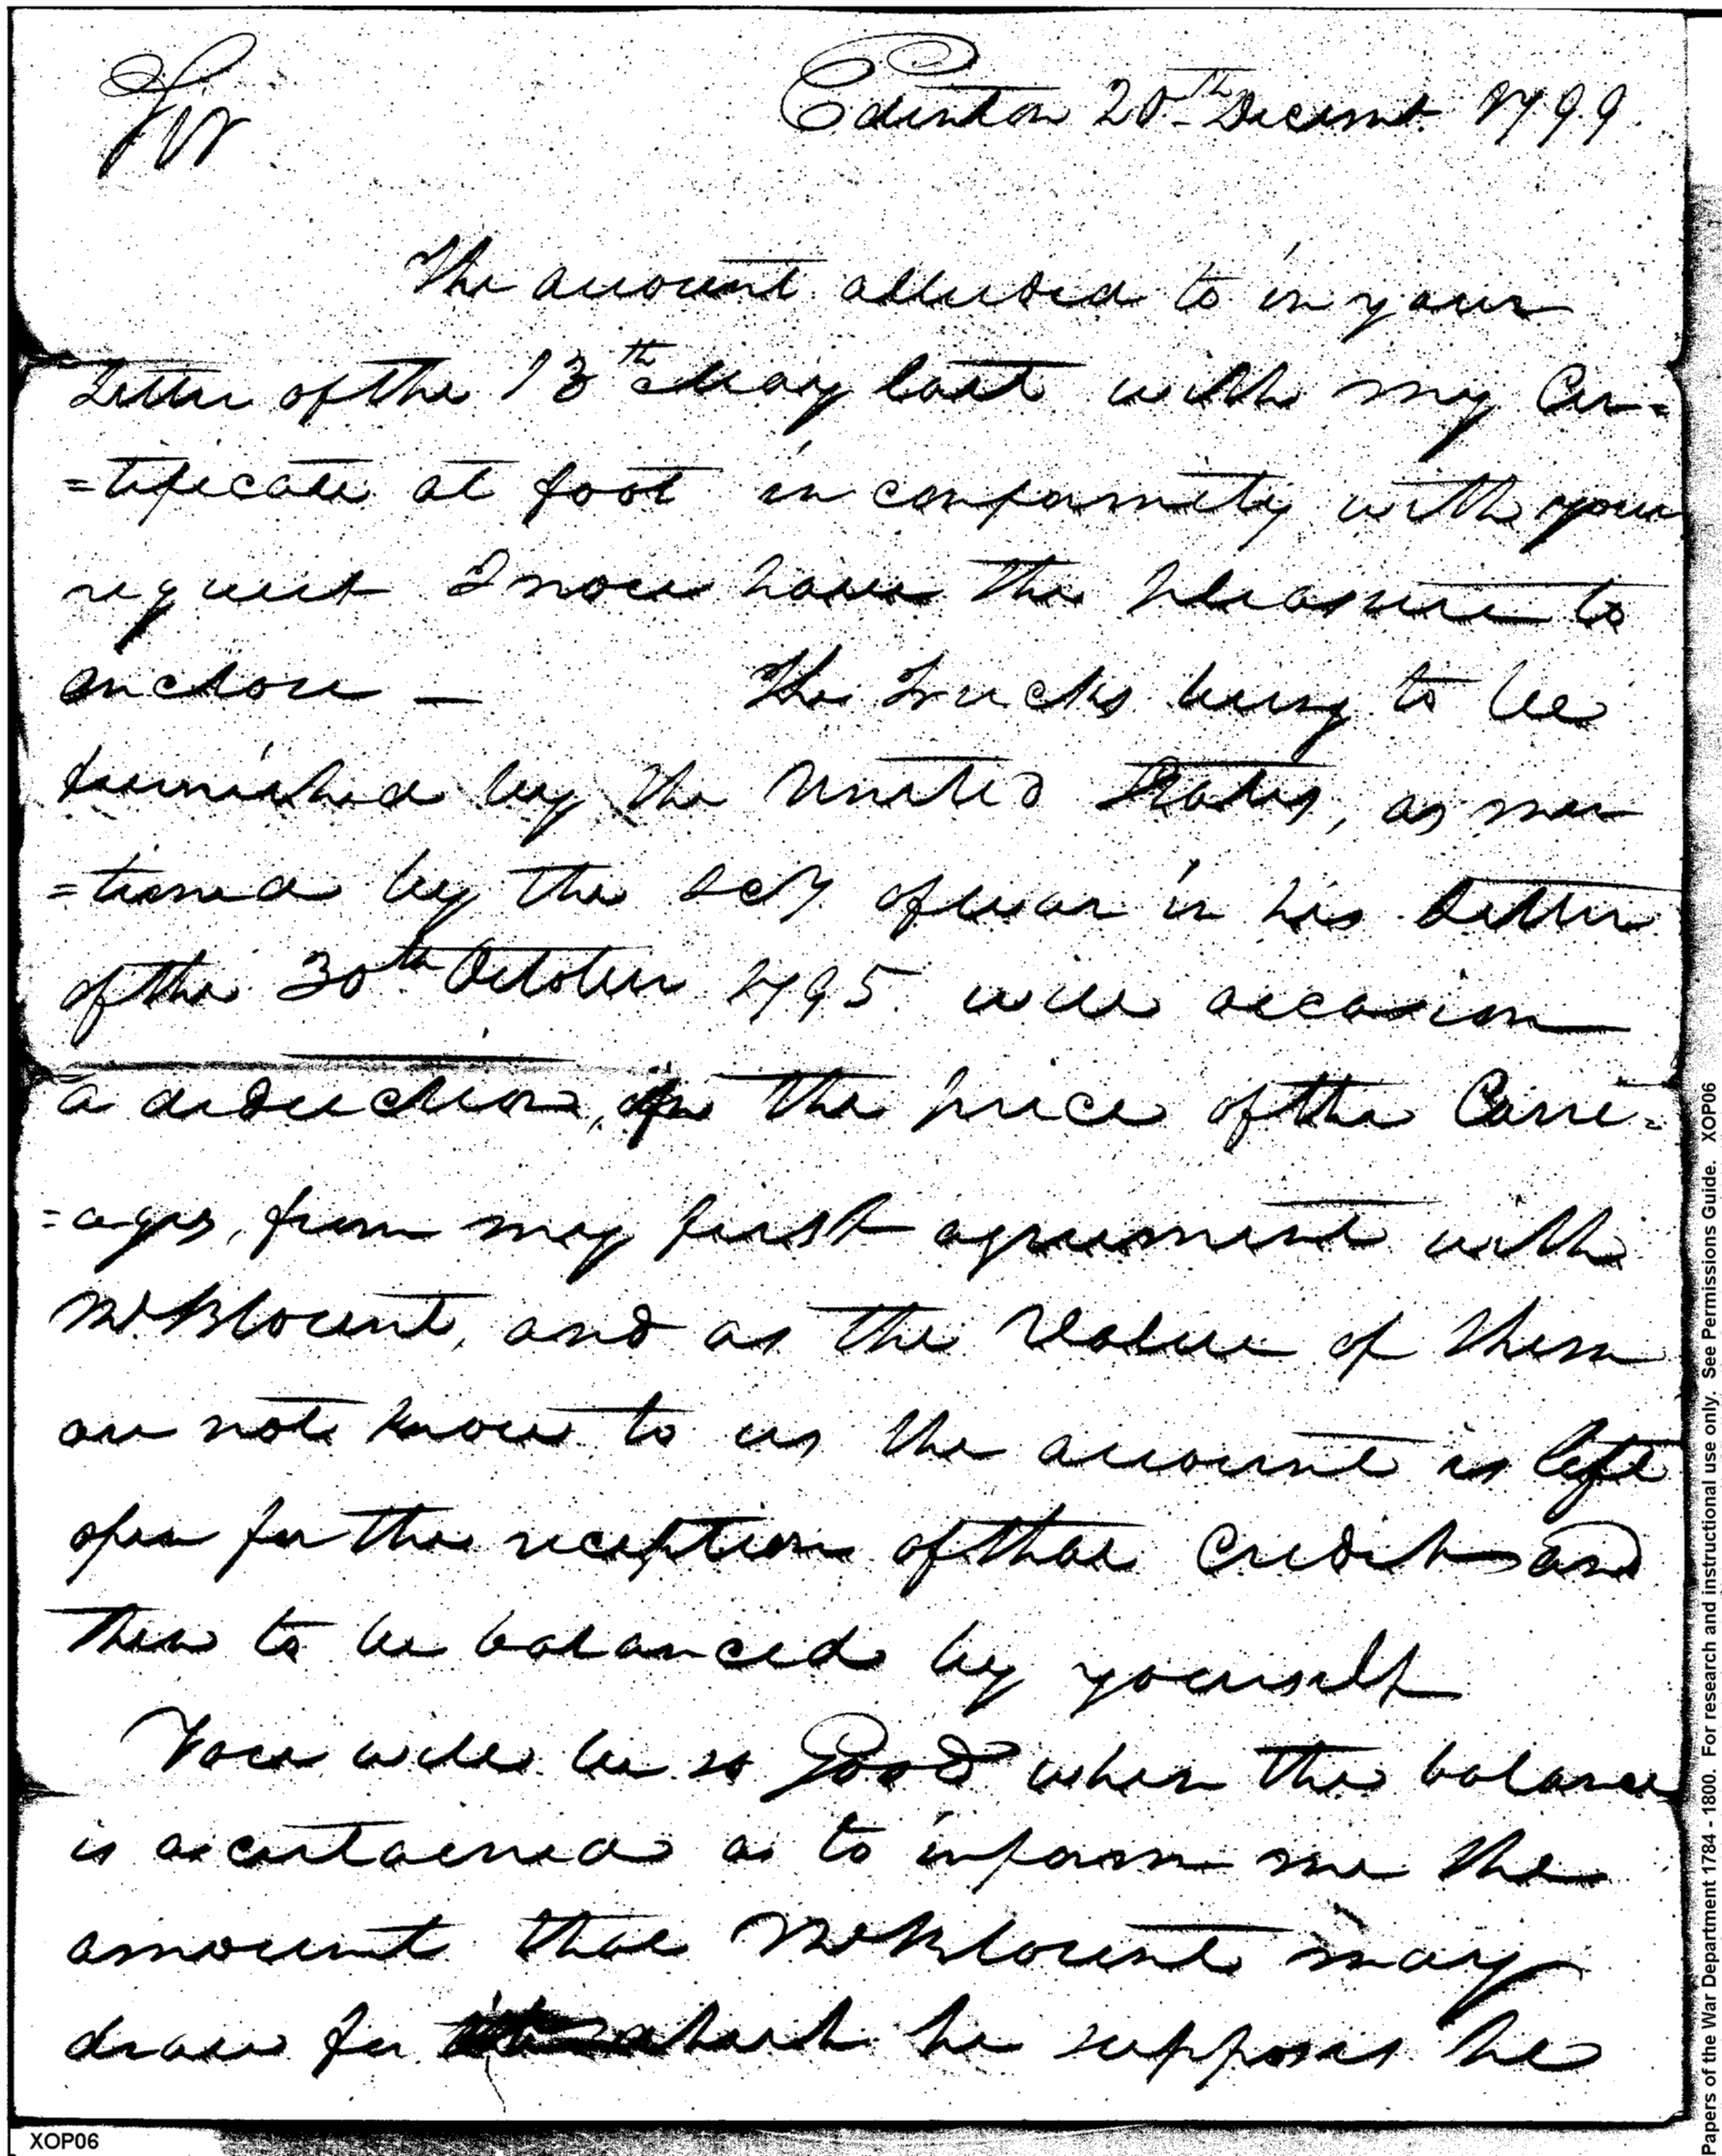 Sir
Edenton 20th Decemr. 1799
The account alluded to in your
Letter of the 13th May last with my Cer=
=tificate at foot in conformity with your
request I now have the pleasure to
enclose — The Trucks being to be
furnished by the United States, as men
=tioned by the Secy of war in his Letter
of the 30th October 1795 will occasion
a deduction, the price of the Carri=
=ages, from my first agreement with
Mr. Blount, and as the Value of them
are not know to us the account is left
open for the reception of that Credit and
then to be balanced by yourself
You will be so Good when the balance
is ascertained as to inform me the
amount that Mr Blount may
draw for which he supposes he
XOP06
Papers of the War Department 1784 - 1800. For research and instructional use only. See Permissions Guide. XOP06